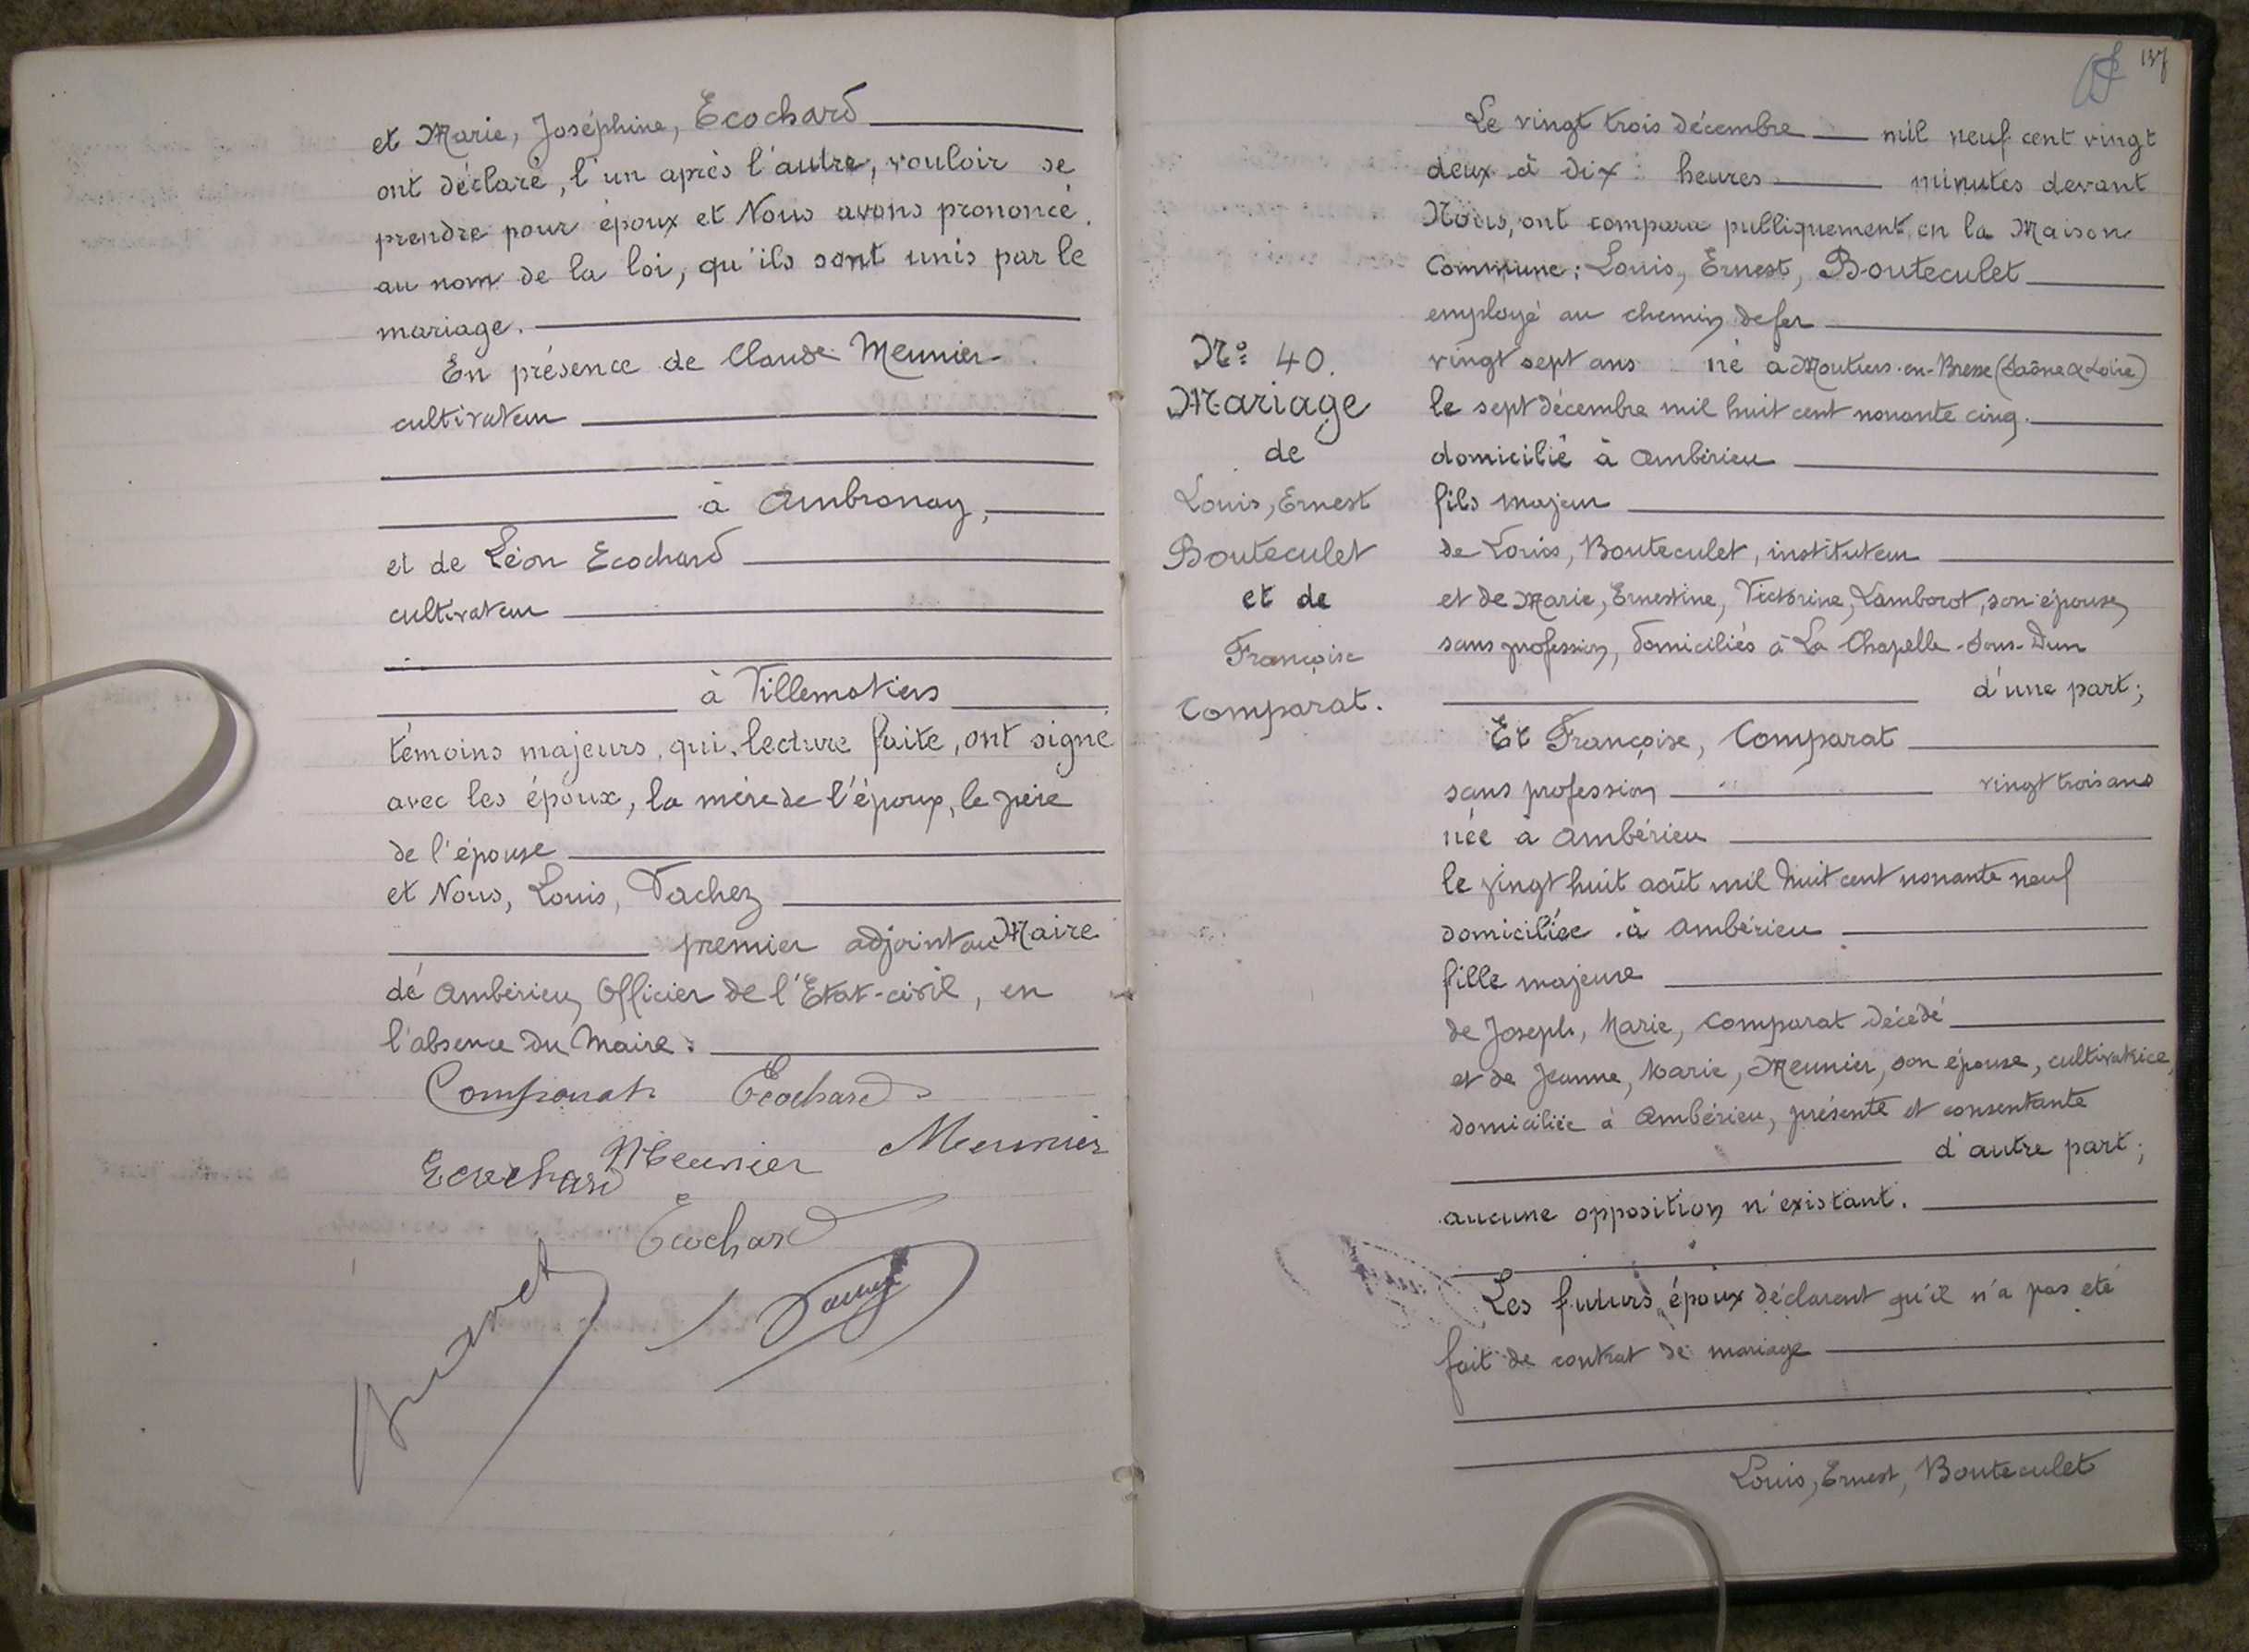 et Marie, Joséphine, Ecochard
ont déclaré, l'un après l'autre, vouloir se
prendre pour époux et Nous avons prononcé,
au nom de la loi, qu'ils sont unis par le
mariage.
En présence de Claude Meunier
cultivateur
à Ambronay,
et de Léon Ecochard
cultivateur
à Villemotiers
témoins majeurs, qui, lecture faite, ont signé
avec les époux, la mère de l'époux, le père
de l'épouse
et Nous, Louis, Tachez
premier adjoint au Maire
de Ambérieu, Officier de l'Etat-civil, en
l'absence du Maire.
Comparat Ecochard
Ecochard Meunier Meunier
Ecochard
137
Le vingt trois décembre mil neuf cent vingt
deux à dix heures minutes devant
Nous, ont comparu publiquement en la Maison
Commune: Louis, Ernest, Bouteculet
employé au chemin de fer
vingt sept ans né à Moutiers-en-Bresse (Saône & Loire)
le sept décembre mil huit cent nonante cinq.
domicilié à Ambérieu
fils majeur
de Louis, Bouteculet, instituteur
et de Marie, Ernestine, Victorine, Lamborot, son épouse,
sans profession, domiciliés à La Chapelle-Sous-Dun
d'une part;
Et Françoise, Comparat
sans profession vingt trois ans
née à Ambérieu
le vingt huit août mil huit cent nonante neuf
domiciliée à Ambérieu
fille majeure
de Joseph, Marie, Comparat décédé
et de Jeanne, Marie, Meunier, son épouse, cultivatrice,
domiciliée à Ambérieu, présente et consentante
d'autre part;
aucune opposition n'existant.
Les futurs époux déclarent qu'il n'a pas été
fait de contrat de mariage
Louis, Ernest, Bouteculet
No 40.
Mariage
de
Louis, Ernest
Bouteculet
et de
Françoise
Comparat.